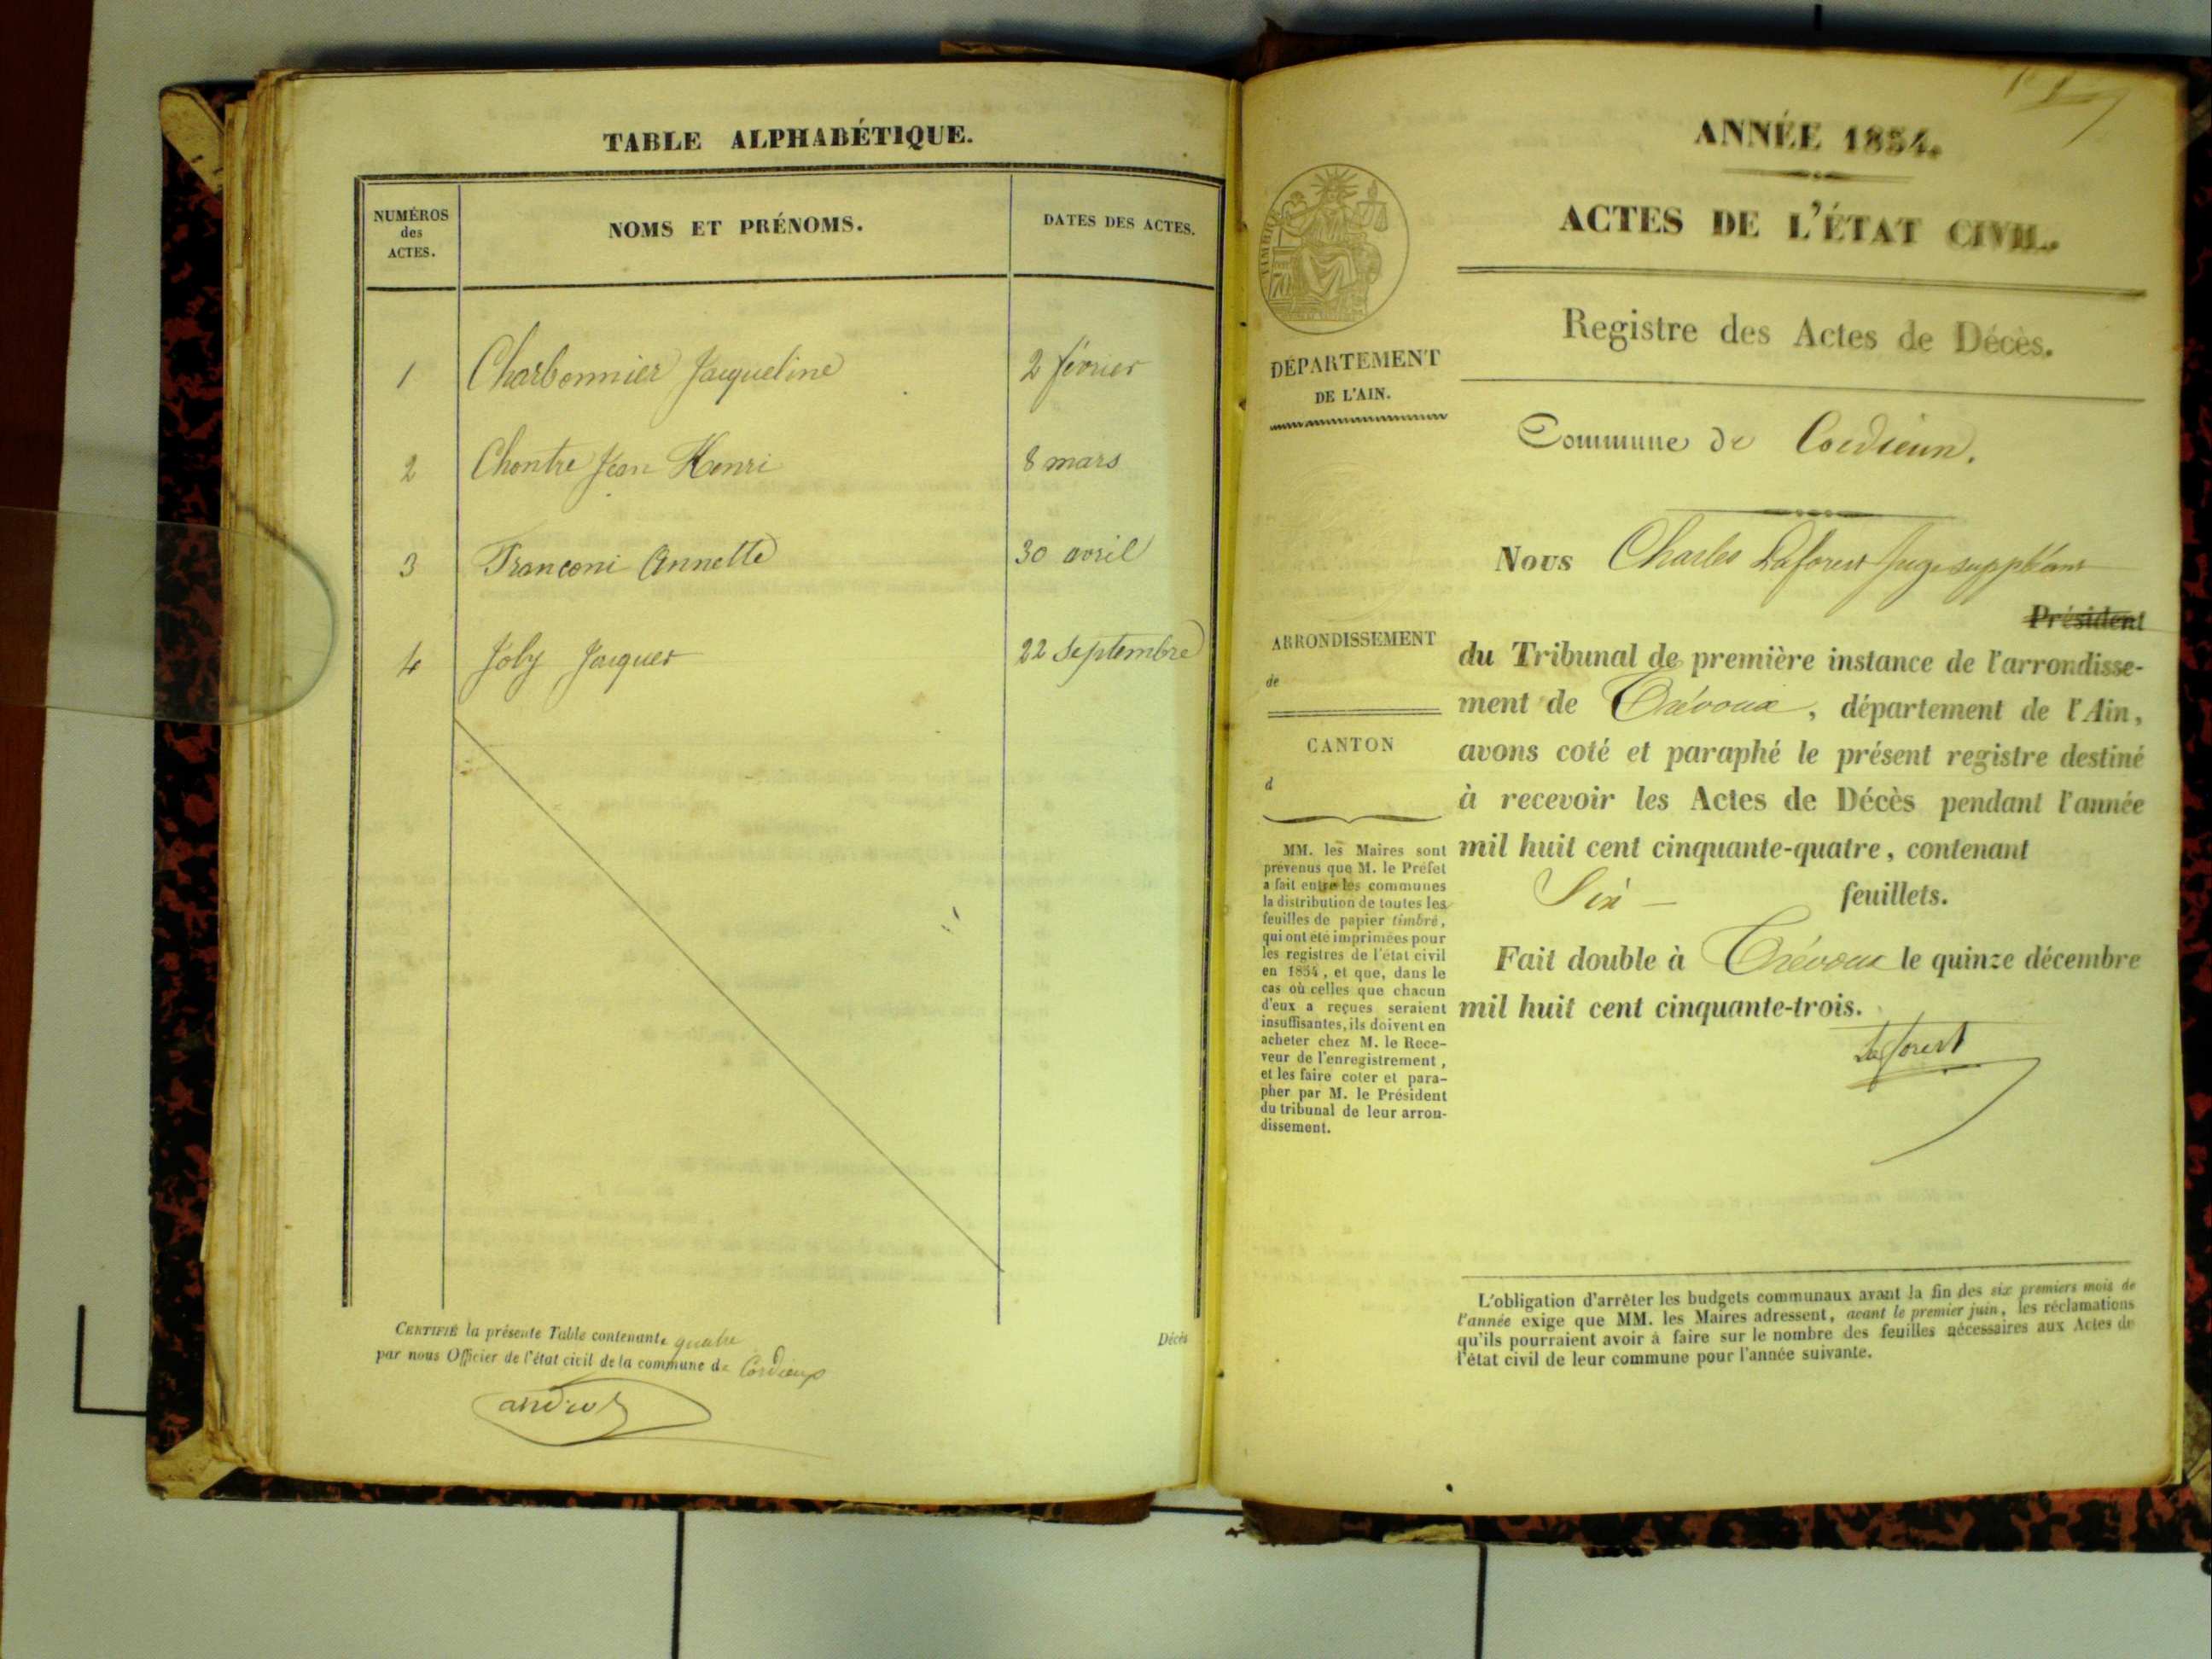 TABLE ALPHABÉTIQUE.
NUMÉROS
des
ACTES.
NOMS ET PRÉNOMS.
DATES DES ACTES.
1 Charbonnier Jacqueline 2 février
2 Chontre Jean Henri 8 mars
3 Franconi Annette 30 avril
4 Joly Jacques 22 septembre
CERTIFIÉ la présente Table contenant quatre
par nous Officier de l'état civil de la commune de Cordieux
Décès
ANNÉE 1854.
ACTES DE L'ÉTAT CIVIL.
TIMBRE
70
Registre des Actes de Décès.
DÉPARTEMENT
DE L'AIN.
Commune de Cordieux.
Nous Charles Laforest Juge suppléant
Président
ARRONDISSEMENT
de
CANTON
d
du Tribunal de première instance de l'arrondisse-
ment de Trévoux, département de l'Ain,
avons coté et paraphé le présent registre destiné
à recevoir les Actes de Décès pendant l'année
mil huit cent cinquante-quatre, contenant
Six — feuillets.
Fait double à Trévoux le quinze décembre
mil huit cent cinquante-trois.
Laforest
MM. les Maires sont
prévenus que M. le Préfet
a fait entre les communes
la distribution de toutes les
feuilles de papier timbré,
qui ont été imprimées pour
les registres de l'état civil
en 1854, et que, dans le
cas où celles que chacun
d'eux a reçues seraient
insuffisantes, ils doivent en
acheter chez M. le Rece-
veur de l'enregistrement,
et les faire coter et para-
pher par M. le Président
du tribunal de leur arron-
dissement.
L'obligation d'arrêter les budgets communaux avant la fin des six premiers mois de
l'année exige que MM. les Maires adressent, avant le premier juin, les réclamations
qu'ils pourraient avoir à faire sur le nombre des feuilles nécessaires aux Actes de
l'état civil de leur commune pour l'année suivante.